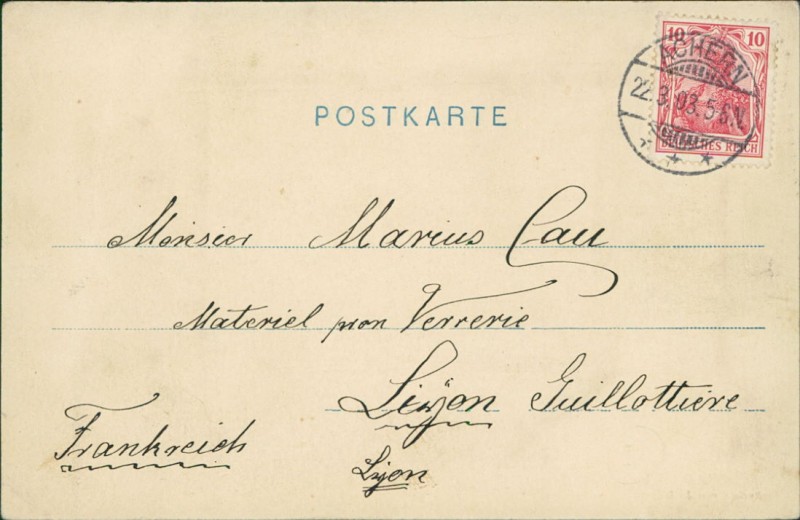 10 10
ACHERN
22.3.03.5-6N.
DEUTSCHES REICH
POSTKARTE
Monsieur Marius Cau
Materiel pour Verrerie
Liyon Guillottiere
Lyon
Frankreich